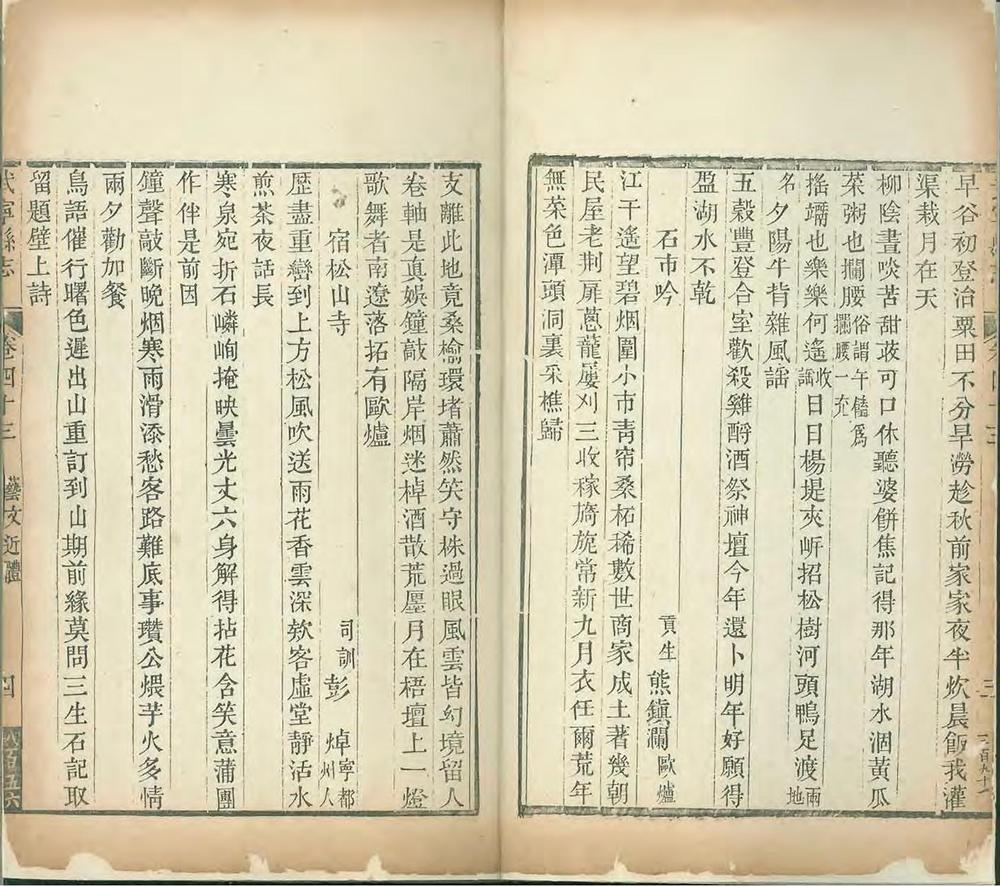 早谷初登治粟田不分旱澇趁秋前家家夜半炊晨飯我灌
渠栽月在天
柳陰晝啖苦甜蔋可口休聽婆餅焦記得那年湖水涸黃瓜
菜粥也攔腰俗謂午饁爲攔腰一充
搖壖也樂樂何遙收謡日日楊堤夾岍招松樹河頭鴨足渡兩地
名夕陽牛背雜風謡
五穀豐登合室歡殺雞酹酒祭神壇今年還卜明年好願得
盈湖水不乾
石市吟 貢生熊鎮瀾歐爐
江干遙望碧烟圍小市靑帘桑柘稀數世商家成土著幾朝
民屋老荆扉蔥蘢屢刈三收稼旖旎常新九月衣任爾荒年
無菜色潭頭洞裏采樵歸
支離此地竟桑榆環堵蕭然笑守株過眼風雲皆幻境留人
卷軸是眞娛鐘敲隔岸烟迷棹酒散荒廛月在梧壇上一燈
歌舞者南遼落拓有歐爐
宿松山寺 司訓彭焯寧都州人
歷盡重巒到上方松風吹送雨花香雲深欵客虛堂靜活水
煎茶夜話長
寒泉宛折石嶙峋掩映曇光丈六身解得拈花含笑意蒲團
作伴是前因
鐘聲敲斷晚烟寒雨滑添愁客路難底事瓚公煨芋火多情
兩夕勸加餐
鳥語催行曙色遲出山重訂到山期前緣莫問三生石記取
留題壁上詩
武寧縣志 卷四十三 藝文近體 四 八百五六